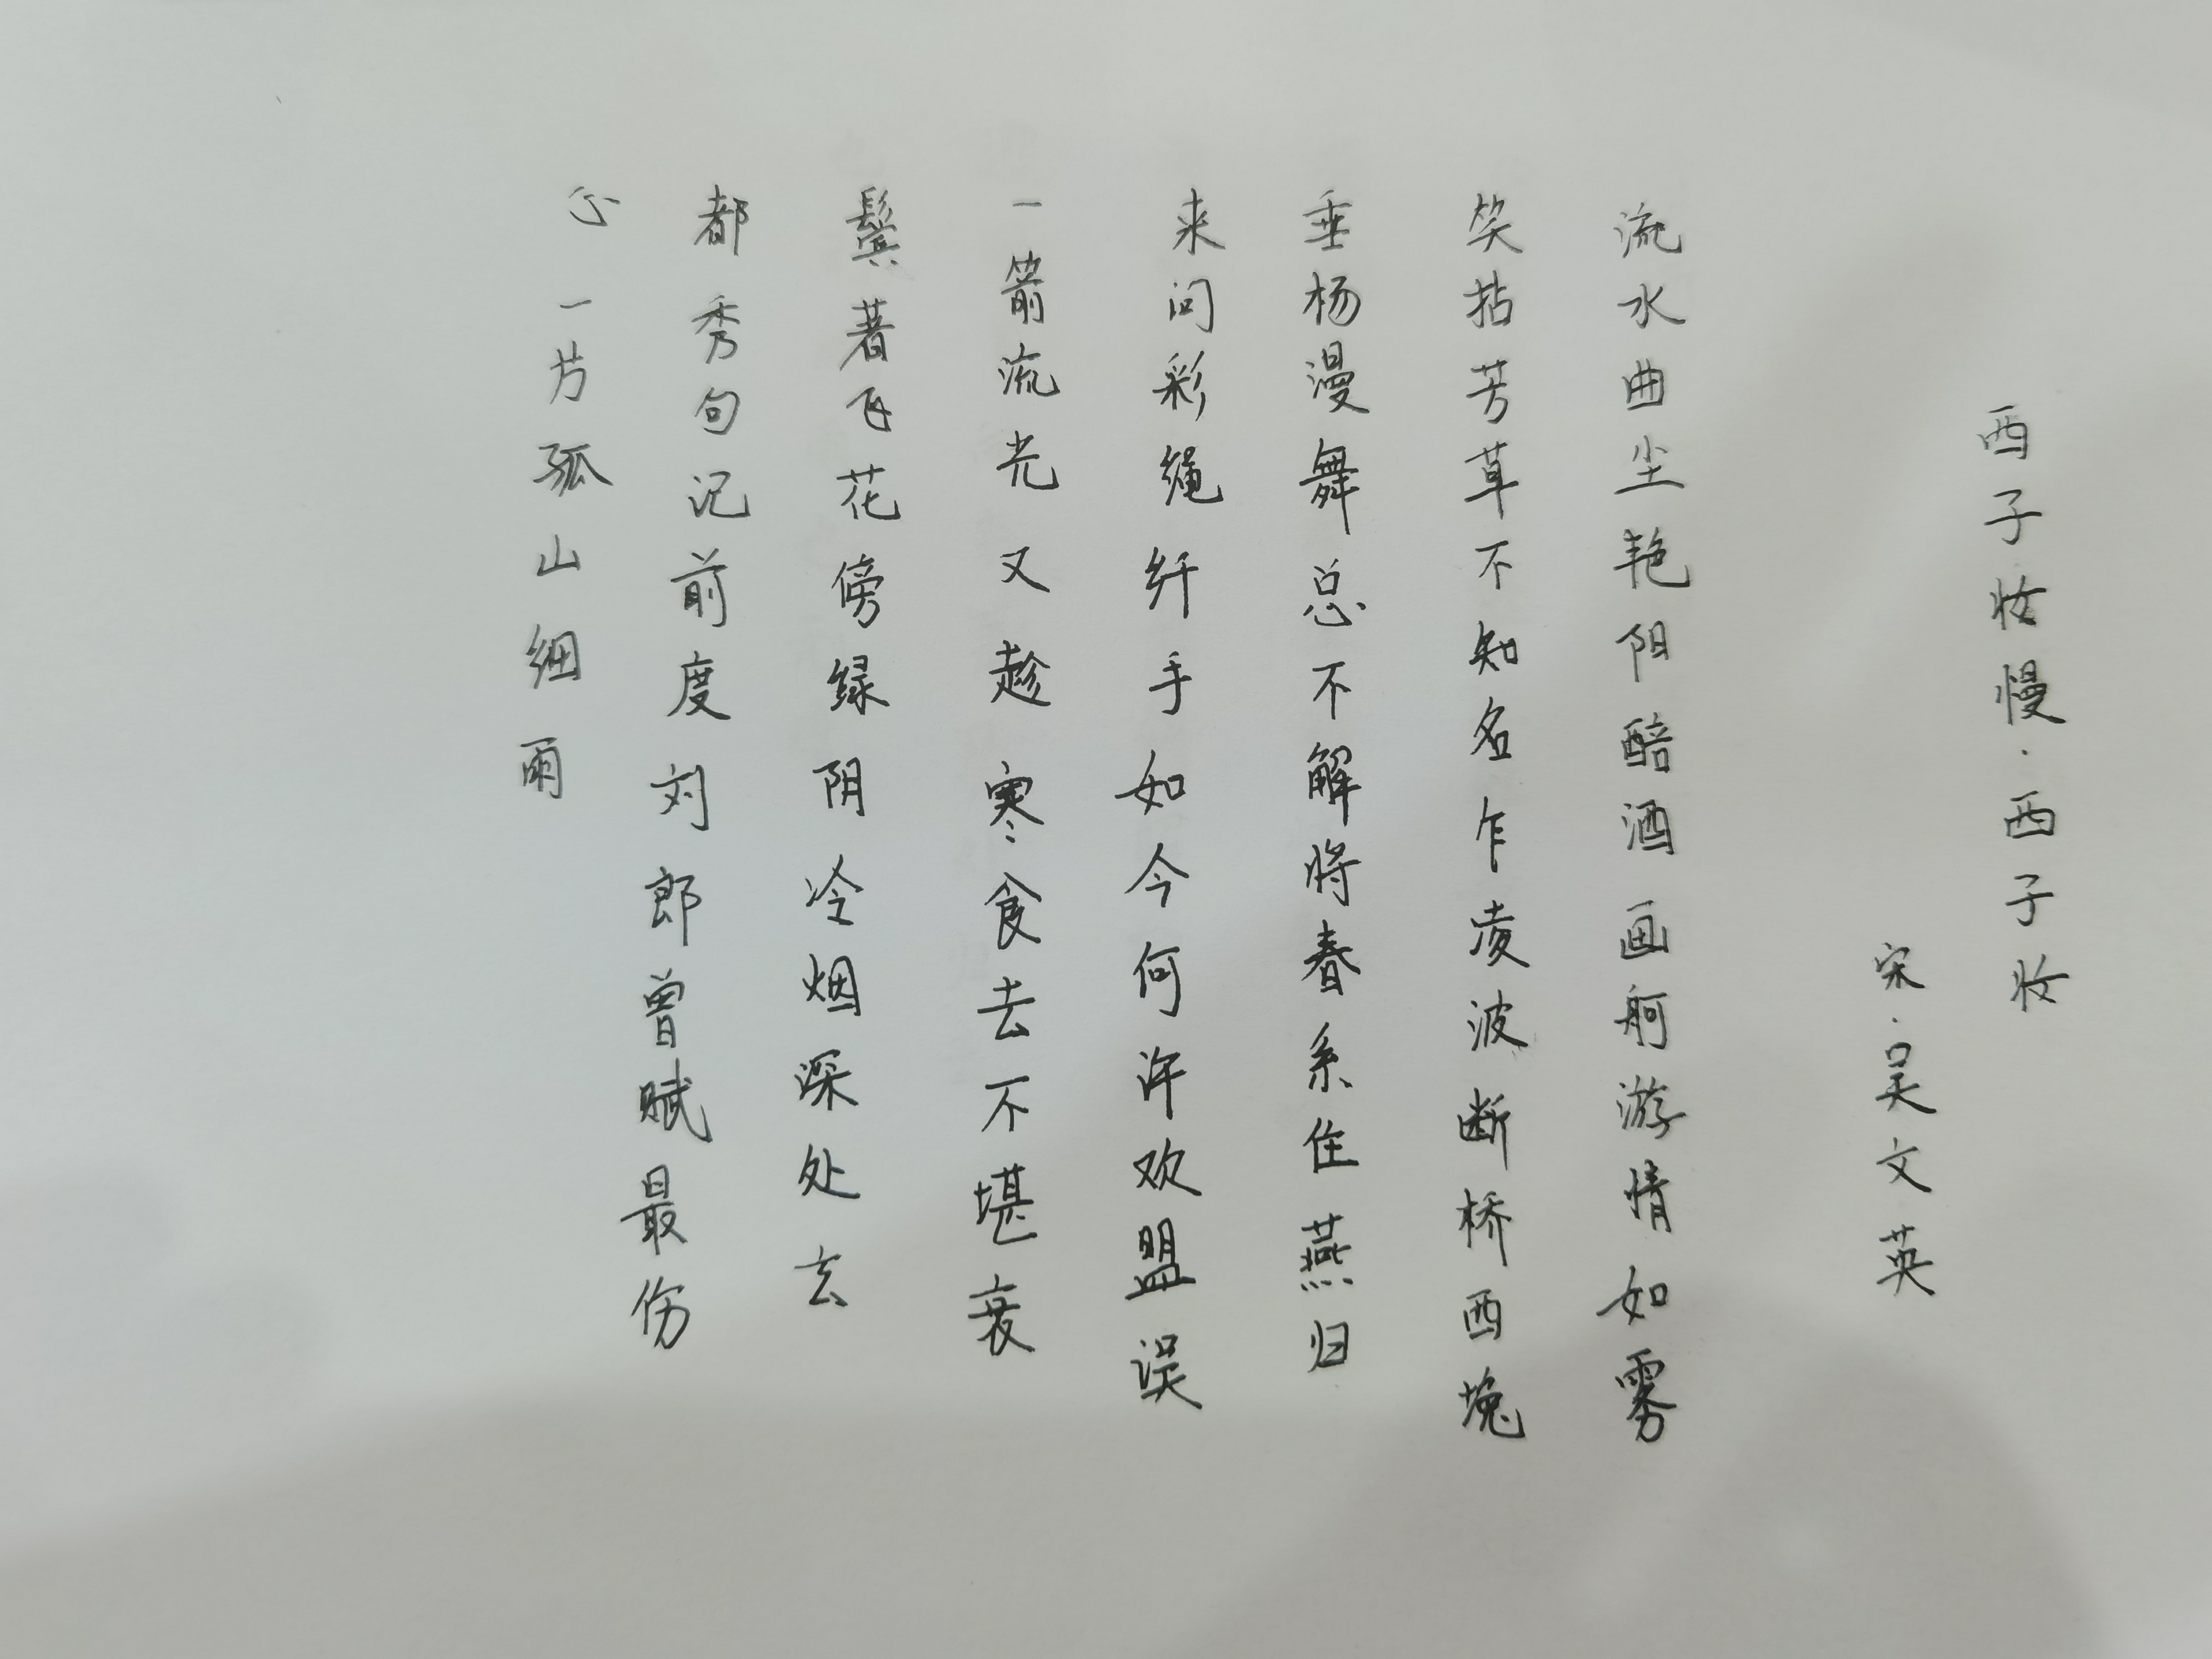 西子妆慢·西子妆
宋·吴文英
流水曲尘艳阳醅酒画舸游情如雾
笑拈芳草不知名乍凌波断桥西堍
垂杨漫舞总不解将春系住燕归
来问彩绳纤手如今何许欢盟误
一箭流光又趁寒食去不堪衰
鬓著飞花傍绿阴冷烟深处玄
都秀句记前度刘郎曾赋最伤
心一片孤山细雨